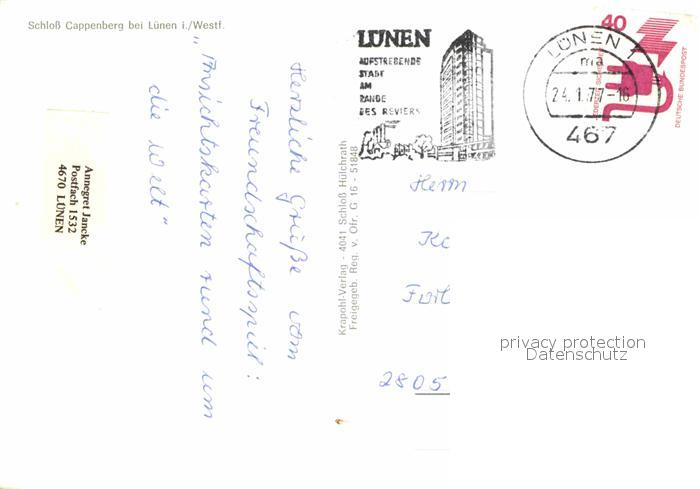 Schloß Cappenberg bei Lünen i./Westf.
Herzliche Grüße vom
Freundschaftsspiel:
„Ansichtskarten rund um
die Welt"
Annegret Jancke
Postfach 1532
4670 LÜNEN
Krapohl-Verlag - 4041 Schloß Hülchrath
Freigegeb. Reg. v. Ofr. G 16 - 51848
LÜNEN
AUFSTREBENDE
STADT
AM
RANDE
DES REVIERS
LÜNEN 1
ma
24.1.77-16
467
40
DEUTSCHE BUNDESPOST
Herrn
2805
privacy protection
Datenschutz